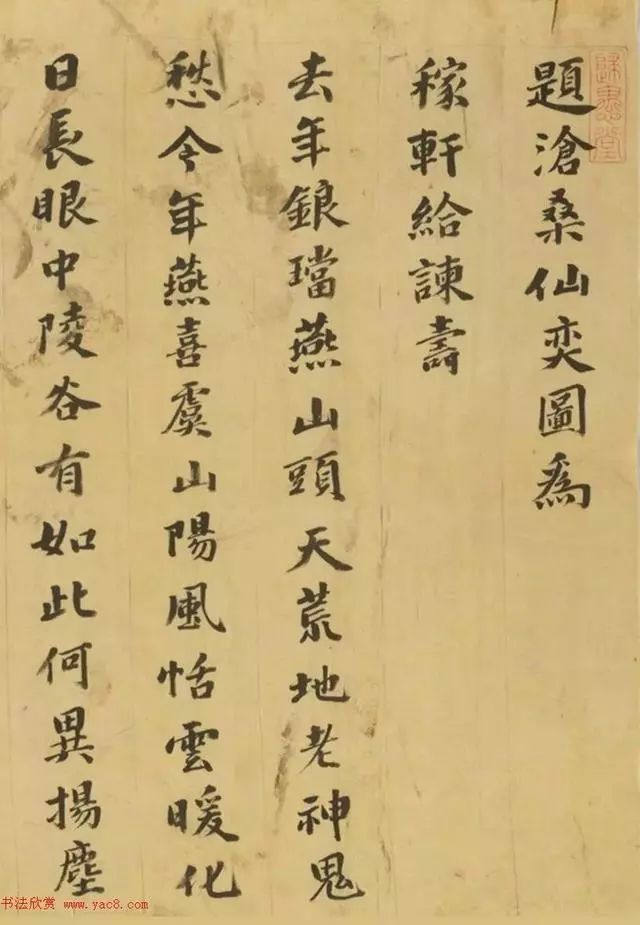 題滄桑仙奕圖為
稼軒給諫壽
去年鋃璫燕山頭天荒地老神鬼
愁今年燕喜虞山陽風恬雲暖化
日長眼中陵谷有如此何異揚塵
书法欣赏
www.yac8.com